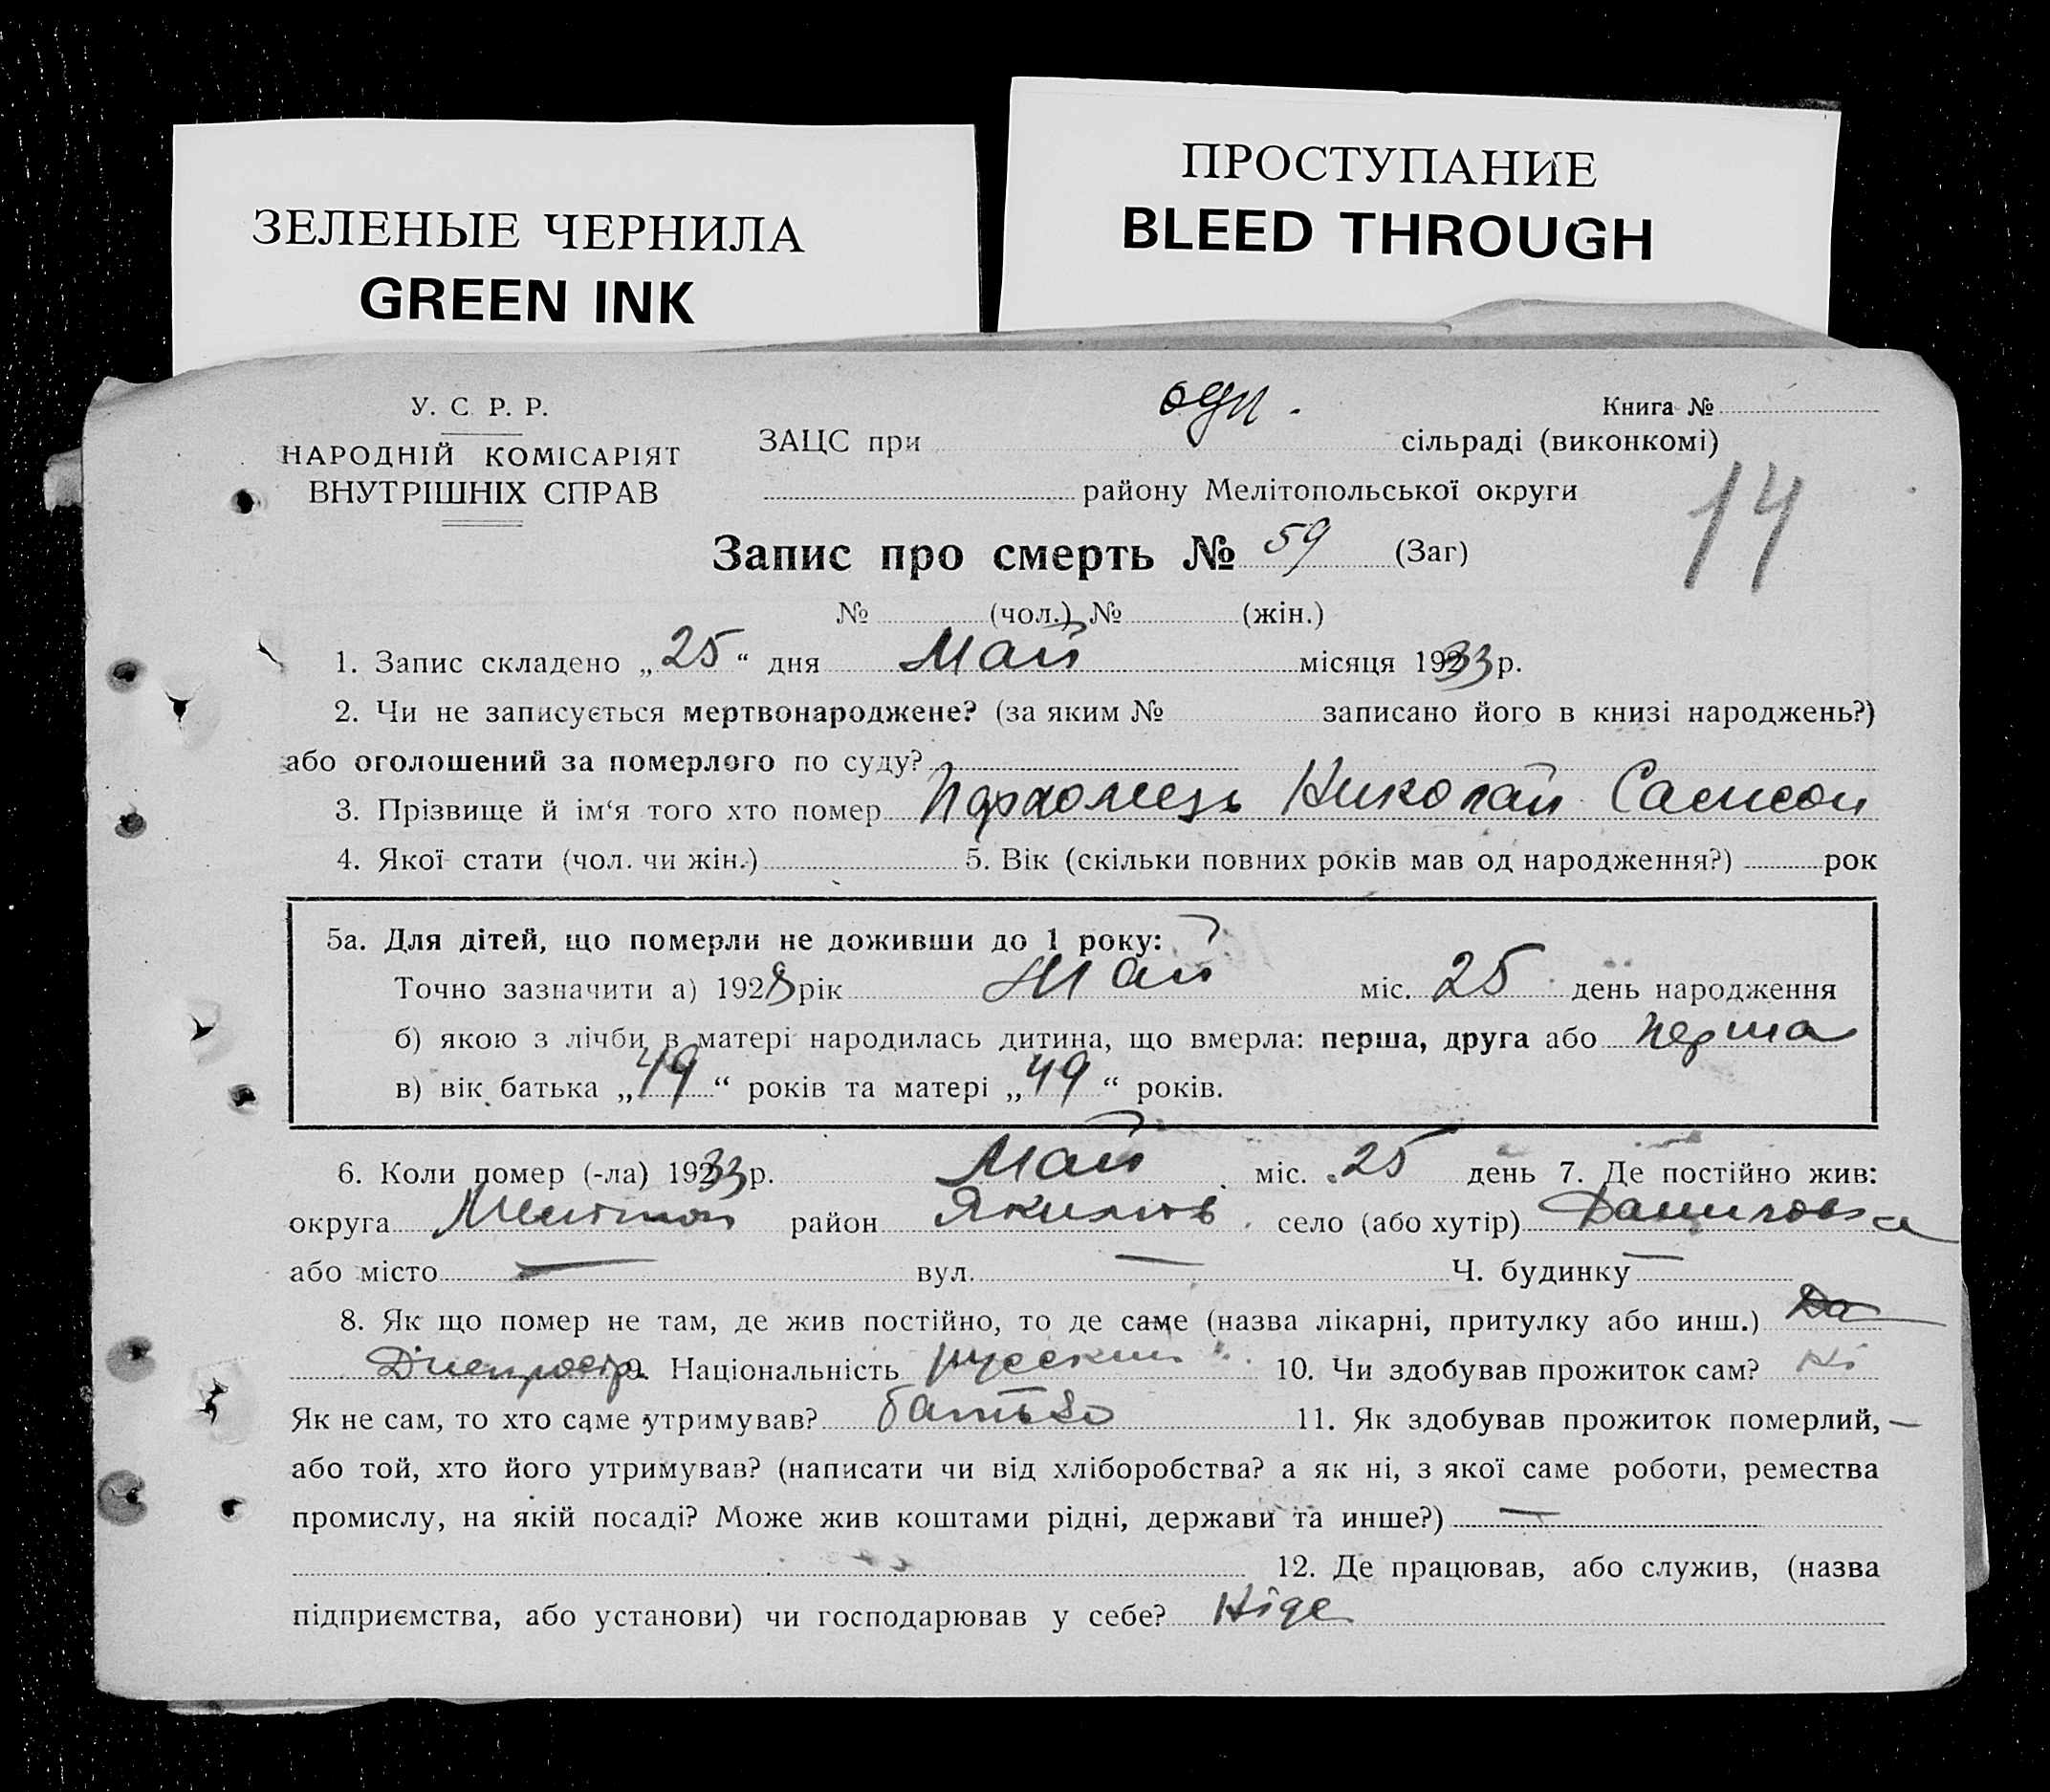 ЗЕЛЕНЫЕ ЧЕРНИЛА
GREEN INK
ПРОСТУПАНИЕ
BLEED THROUGH
У. С. Р. Р.
НАРОДНІЙ КОМІСАРІЯТ
ВНУТРІШНІХ СПРАВ
Книга №
ЗАЦС при сільраді (виконкомі)
району Мелітопольської округи
14
Запис про смерть № 59 (Заг)
№ (чол.) № (жін.)
1. Запис складено „25“ дня Май місяця 1933 р.
2. Чи не записується мертвонароджене? (за яким № записано його в книзі народжень?)
або оголошений за померлого по суду?
3. Прізвище й ім‘я того хто помер Пархомець Николай Самсон
4. Якої стати (чол. чи жін.) 5. Вік (скільки повних років мав од народження?) рок
5а. Для дітей, що померли не доживши до 1 року:
Точно зазначити а) 1928 рік Май міс. 25 день народження
б) якою з лічби в матері народилась дитина, що вмерла: перша, друга або перша
в) вік батька „49“ років та матері „49“ років.
6. Коли помер (-ла) 1933 р. Май міс. 25 день 7. Де постійно жив:
округа Мелитоп район Якимов село (або хутір) Даниловка
або місто — вул. — Ч. будинку —
8. Як що помер не там, де жив постійно, то де саме (назва лікарні, притулку або инш.) Да
Днепростр. 9. Національність русский 10. Чи здобував прожиток сам? Ні
Як не сам, то хто саме утримував? батько 11. Як здобував прожиток померлий, —
або той, хто його утримував? (написати чи від хліборобства? а як ні, з якої саме роботи, ремества
промислу, на якій посаді? Може жив коштами рідні, держави та инше?) —
12. Де працював, або служив, (назва
підприємства, або установи) чи господарював у себе? Ніде